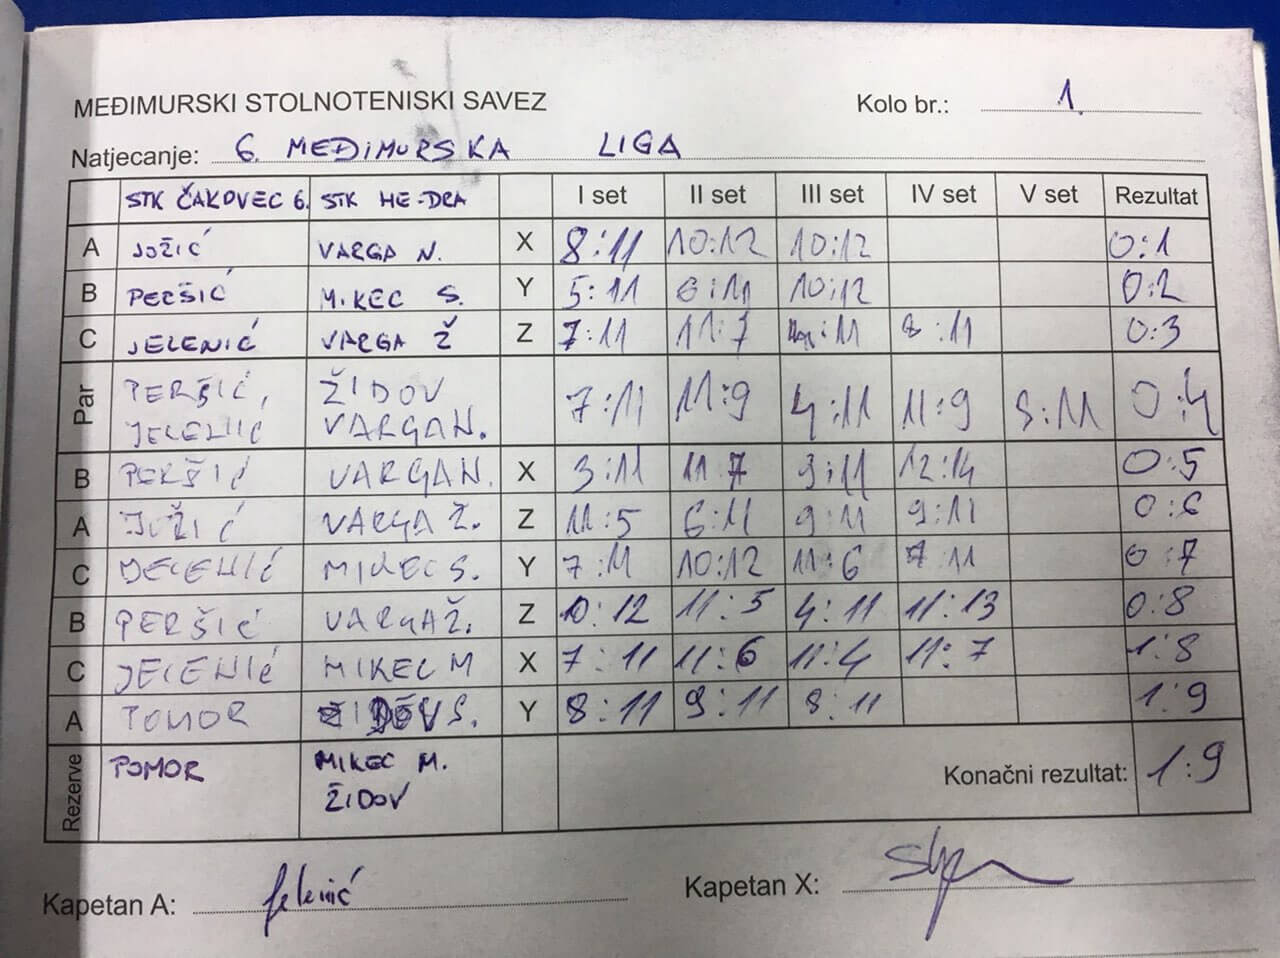 MEĐIMURSKI STOLNOTENISKI SAVEZ Kolo br.: 1.
Natjecanje: 6. MEĐIMURSKA LIGA
STK ČAKOVEC 6. STK HE-DRA I set II set III set IV set V set Rezultat
A JOŽIĆ VARGA N. X 8:11 10:12 10:12 0:1
B PERŠIĆ MIKEC S. Y 5:11 6:11 10:12 0:2
C JELENIĆ VARGA Ž Z 7:11 11:7 :11 8:11 0:3
Par PERŠIĆ, ŽIDOV 7:11 11:9 4:11 11:9 :11 0:4
JELENIĆ VARGA N.
B PERŠIĆ VARGA N. X 3:11 11:7 9:11 12:14 0:5
A JOŽIĆ VARGA Ž. Z 11:5 6:11 9:11 9:11 0:6
C JELENIĆ MIKEC S. Y 7:11 10:12 11:6 7:11 0:7
B PERŠIĆ VARGA Ž. Z 10:12 11:5 4:11 11:13 0:8
C JELENIĆ MIKEC M X 7:11 11:6 11:4 11:7 1:8
A POMOR S. Y 8:11 9:11 8:11 1:9
Rezerve POMOR MIKEC M. Konačni rezultat: 1:9
ŽIDOV
Kapetan A: Jelenić Kapetan X: